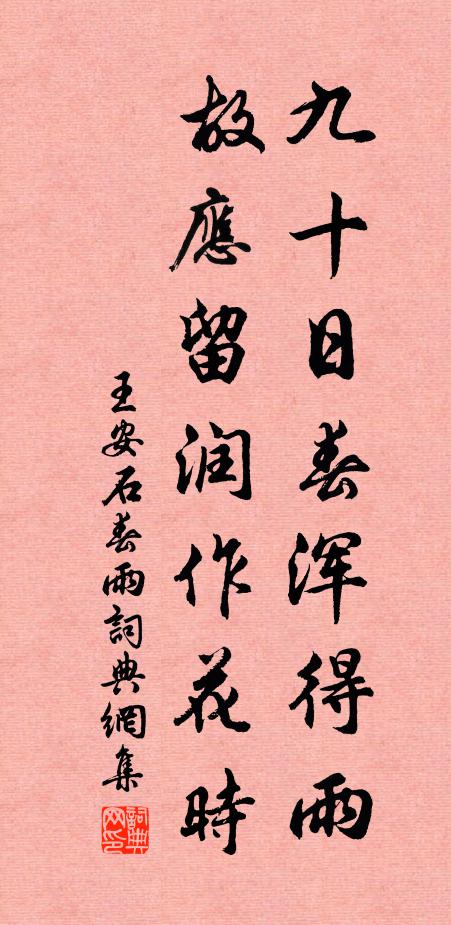 九十日春浑得雨
故應留润作花時
王安石春雨詞典網集
詞典网印